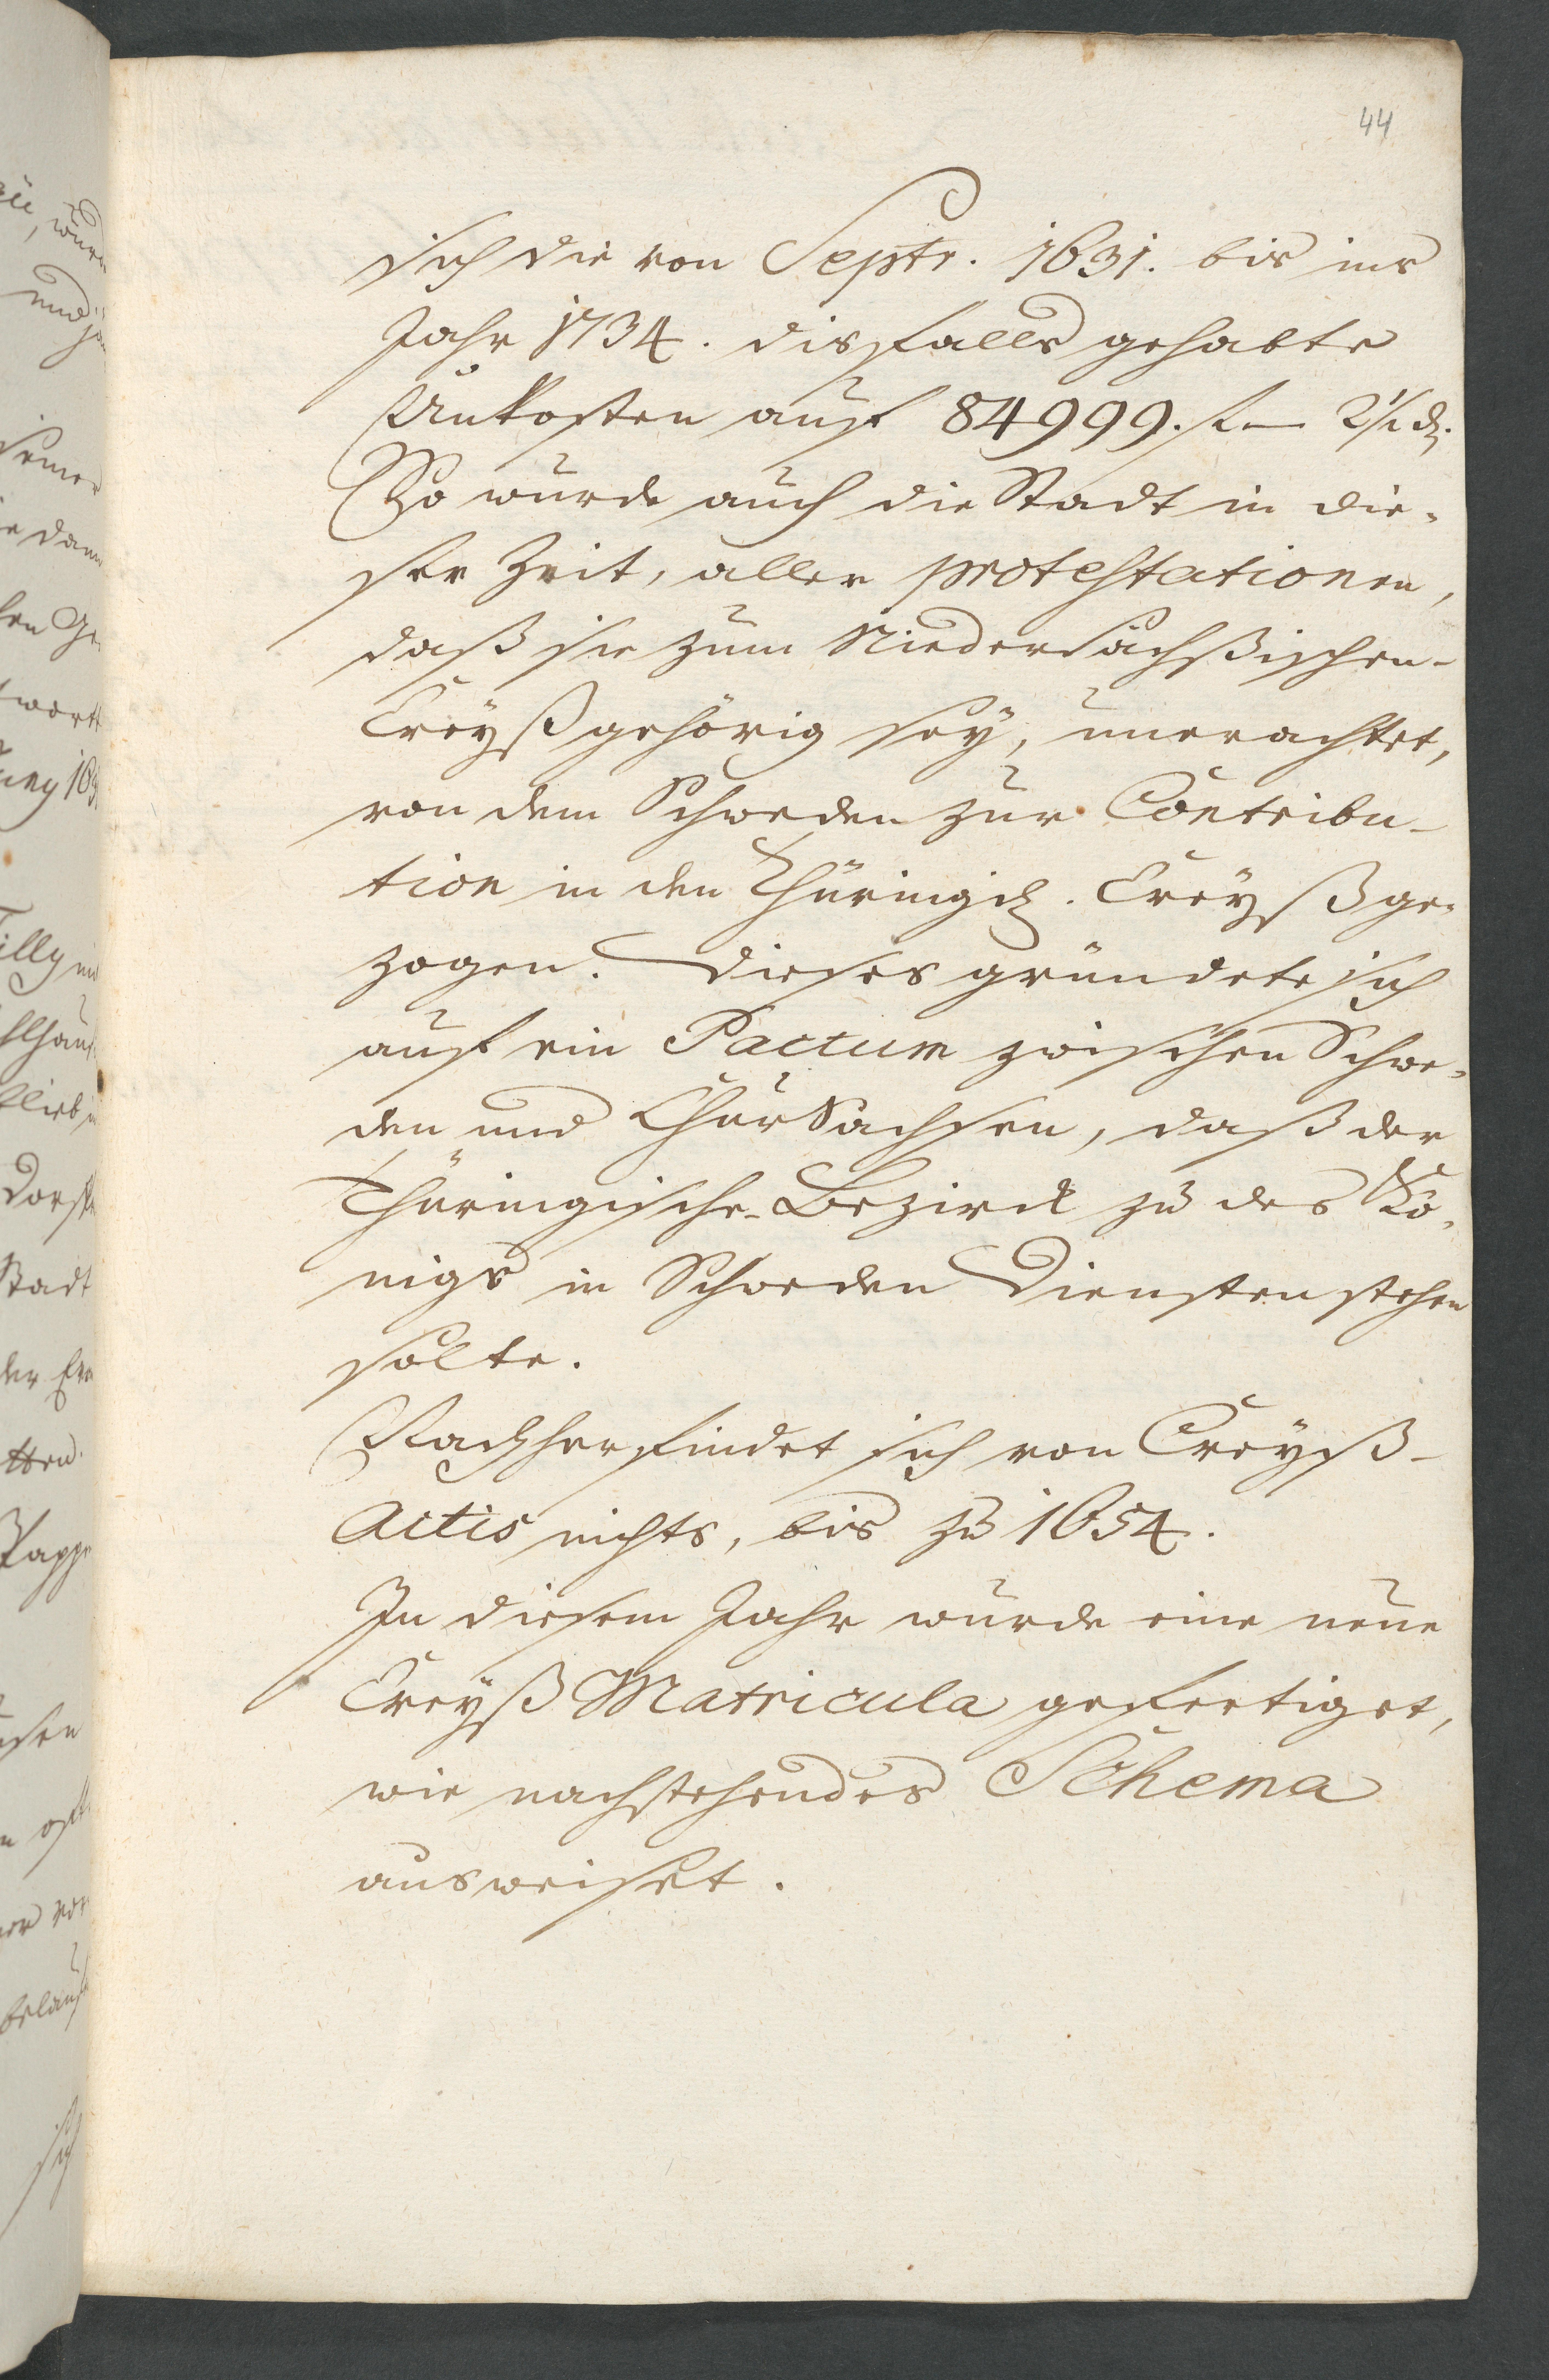 44
sich die von Septr. 1631. bis ins
Jahr 1734. disfalls gehabte
Unkosten auf 84999. f — 2½ ₰.
So wurde auch die Stadt in die-
ser Zeit, aller protestationen,
daß sie zum Niedersächßischen-
Creyß gehörig sey, unerachtet,
von dem Schweden zur Contribu-
tion in den Thüringsch. Creyß ge-
zogen. Dieses gründete sich
auf ein Pactum zwischen Schwe-
den und ChurSachsen, daß der
Thüringische-Bezirck zu des Kö-
nigs in Schweden Diensten stehen
solte.
Nachher findet sich von Creyß-
Actis nichts, bis zu 1654.
In diesem Jahr wurde eine neue
Creyß Matricula gefertiget,
wie nachstehendes Schema
ausweiset.